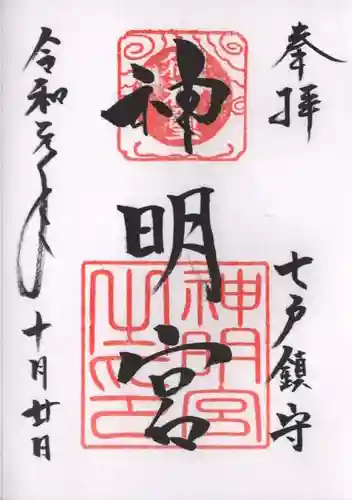 奉拝
七戸鎮守
神明宮
令和元年
十月廿日
神明宮之印